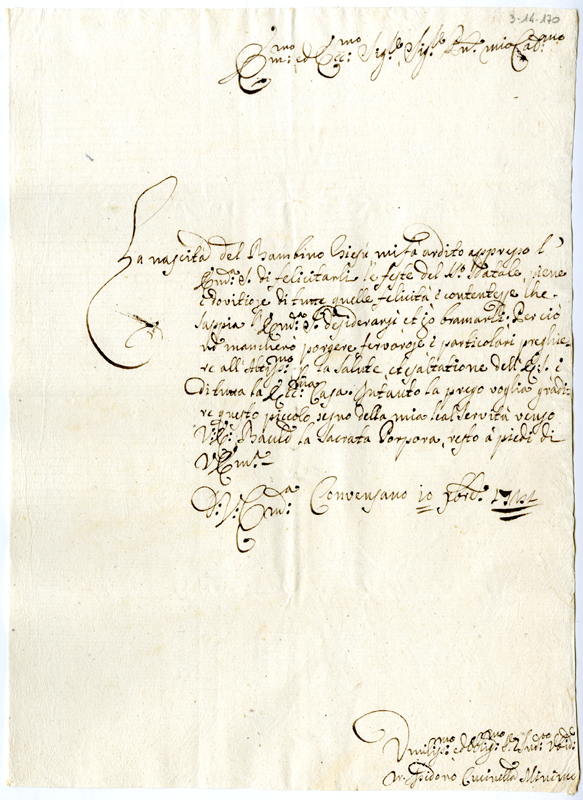 3-14-170
Em:mo ed Ecc:mo Sig:re Sig:re Pn:e mio Col:mo
La nascita del Bambino Giesù mi fa ardito appresso l'
Em:za S. di felicitarli le feste del SS. Natale, piene
e doviziose di tutte quelle felicità e contentezze che
sappia V. Em:za S. desiderarsi et io bramarli. Per ciò
nè mancherò porgere fervorose e particolari preghie-
re all'Altiss:mo p la salute et esaltatione dell'E.S. e
di tutta la Ecc:ma Casa. Intanto la prego voglia gradi-
re questo piccolo segno della mia leal servitù verso
V.E. la sacrata Porpora, resto à piedi di
V. Em:za
D: V: Em:a Conversano 10 Xbre
Umiliss:mo ed Oblig:mo
Isidoro Cucinella Minimo